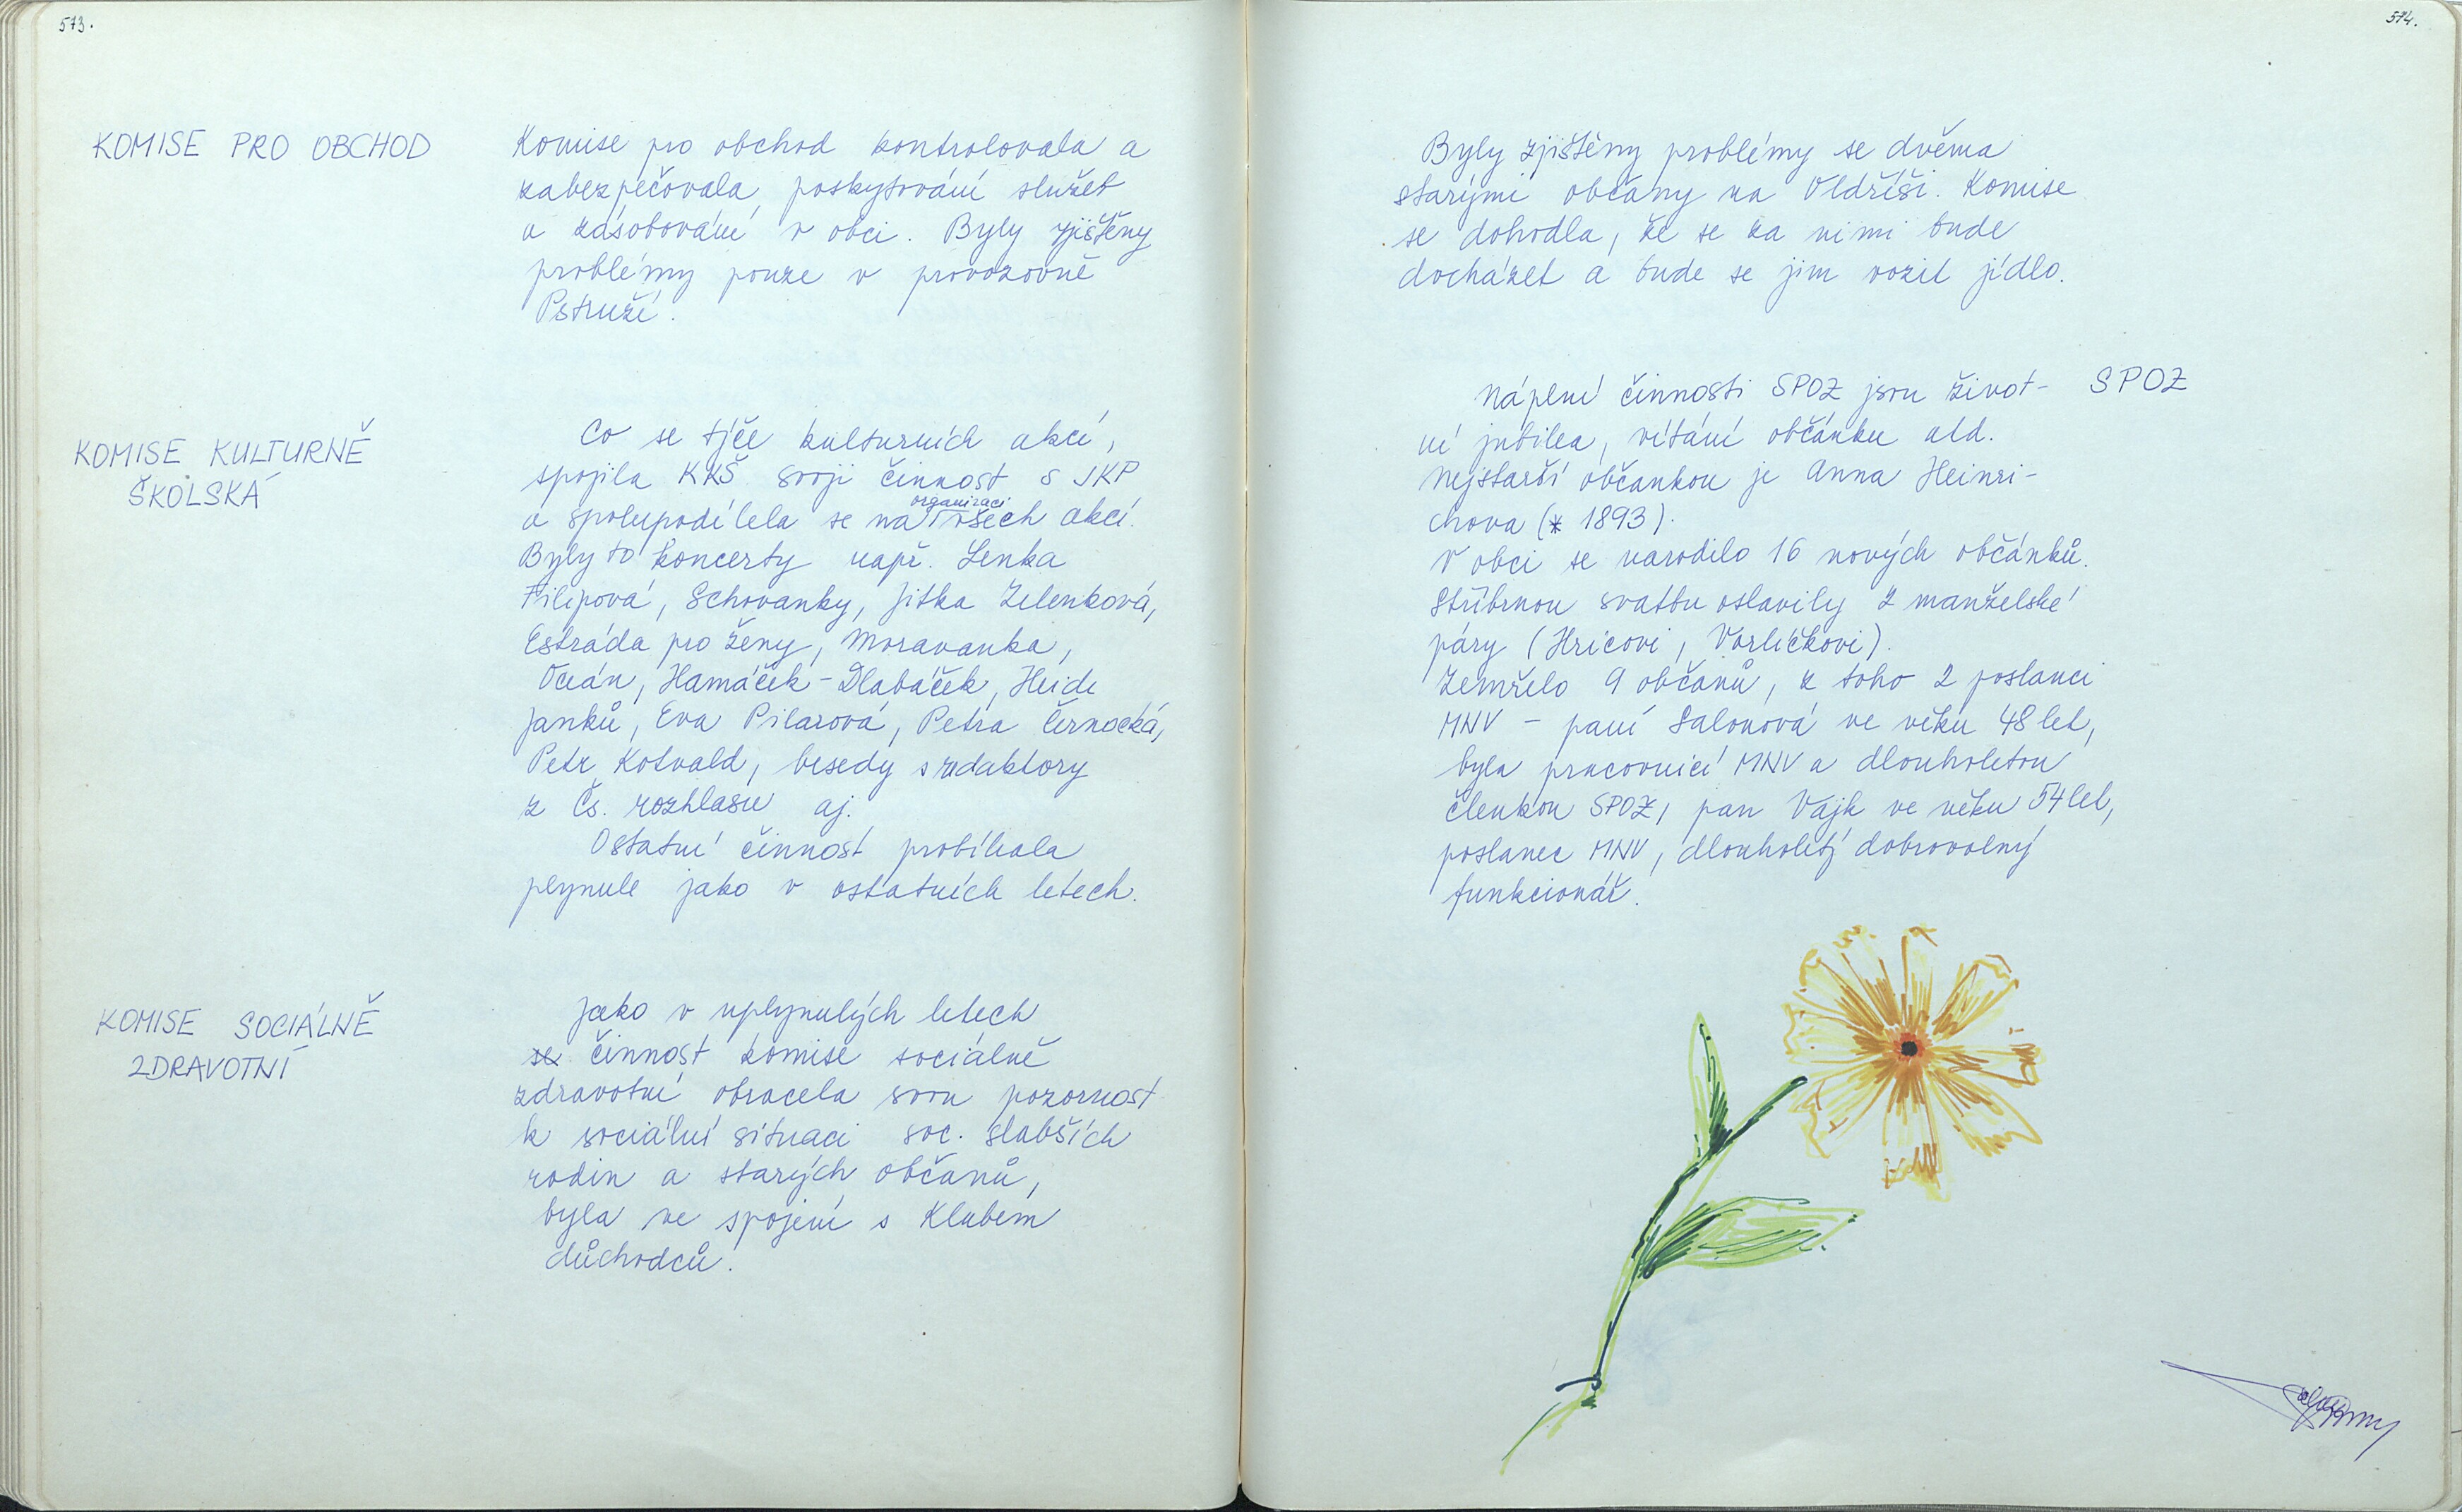 573.
KOMISE PRO OBCHOD
Komise pro obchod kontrolovala a
zabezpečovala poskytování služeb
a zásobování v obci. Byly zjištěny
problémy pouze v provozovně
Pstruží.
KOMISE KULTURNĚ
ŠKOLSKÁ
Co se týče kulturních akcí,
spojila KKŠ svoji činnost s JKP
organizaci
a spolupodílela se na všech akcí.
Byly to koncerty např. Lenka
Filipová, Schovanky, Jitka Zelenková,
Estráda pro ženy, Moravanka,
Oceán, Hamáček - Dlabáček, Heide
Janků, Eva Pilarová, Petra Černocká,
Petr Kotvald, besedy s redaktory
z Čs. rozhlasu aj.
Ostatní činnost probíhala
plynule jako v ostatních letech.
KOMISE SOCIÁLNĚ
ZDRAVOTNÍ
Jako v uplynulých letech
se činnost komise sociálně
zdravotní obracela svou pozornost
k sociální situaci soc. slabších
rodin a starých občanů,
byla ve spojení s Klubem
důchodců.
574.
Byly zjištěny problémy se dvěma
starými občany na Oldříši. Komise
se dohodla, že se za nimi bude
docházet a bude se jim vozit jídlo.
SPOZ
Náplní činnosti SPOZ jsou život-
ní jubilea, vítání občánku atd.
Nejstarší občankou je Anna Heinri-
chova (* 1893).
V obci se narodilo 16 nových občánků.
Stříbrnou svatbu oslavily 2 manželské
páry (Hricovi, Vorlíčkovi).
Zemřelo 9 občanů, z toho 2 poslanci
MNV - paní Salonová ve věku 48 let,
byla pracovnicí MNV a dlouholetou
členkou SPOZ, pan Vajk ve věku 54 let,
poslanec MNV, dlouholetý dobrovolný
funkcionář.